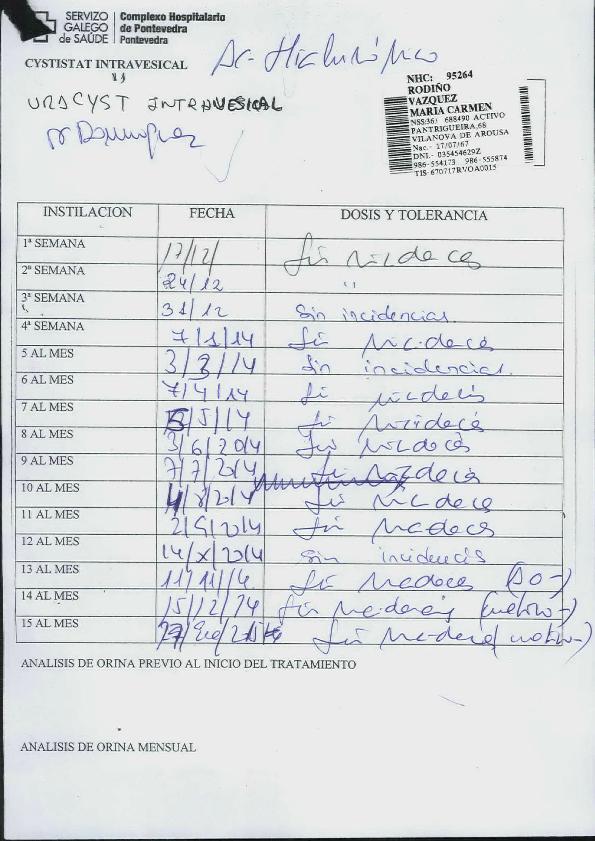 SERVIZO GALEGO de SAÚDE
Complexo Hospitalario de Pontevedra
Pontevedra
Ac- Hialurónico
CYSTISTAT INTRAVESICAL
URACYST INTRAVESICAL
Dr Dominguez
NHC: 95264
RODIÑO
VAZQUEZ
MARIA CARMEN
NSS:36/ 688490 ACTIVO
PANTRIGUEIRA,68
VILANOVA DE AROUSA
Nac.- 17/07/67
DNI.- 035454629Z
986-554173 986-555874
TIS-670717RVOA0015
INSTILACION FECHA DOSIS Y TOLERANCIA
1ª SEMANA 17/12/ Sin incidencias
2ª SEMANA 24/12 "
3ª SEMANA 31/12 Sin incidencias.
4ª SEMANA 7/1/14 Sin incidencias
5 AL MES 3/3/14 Sin incidencias.
6 AL MES 7/4/14 Sin incidencias
7 AL MES 5/5/14 Sin incidencias
8 AL MES 3/6/2014 Sin incidencias
9 AL MES 7/7/2014 Sin incidencias
10 AL MES 4/8/2014 Sin incidencias
11 AL MES 2/9/2014 Sin incidencias
12 AL MES 14/X/2014 Sin incidencias
13 AL MES 11/11/14 Sin incidencias (SO-)
14 AL MES 15/12/14 Sin incidencias
15 AL MES Sin incidencias
ANALISIS DE ORINA PREVIO AL INICIO DEL TRATAMIENTO
ANALISIS DE ORINA MENSUAL